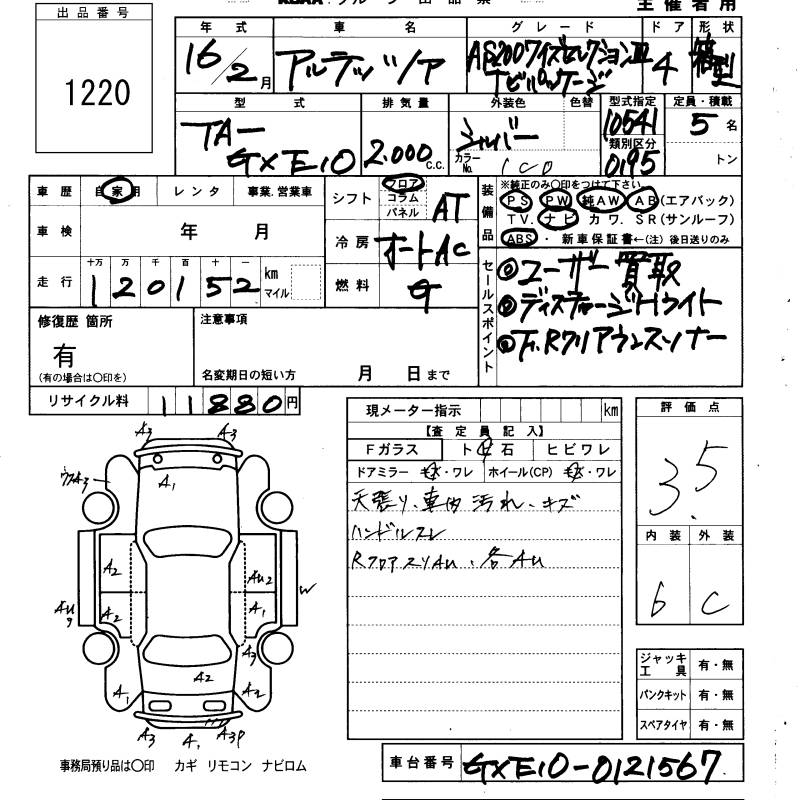 主催者用
出品番号
1220
年式 車名 グレード ドア 形状
16/2月 アルテッツァ AS200ワイズセレクションII 4 箱型
型式 排気量 外装色 色替 型式指定 定員・積載
TA-
GXE10 2.000 c.c. シルバー 10541 5名
類別区分
カラーNo. 1C0 0195 トン
車歴 自家用 レンタ 事業.営業車
車検 年 月
走行 十万 万 千 百 十 一
120152 km マイル
シフト フロア コラム パネル AT
冷房 オートAC
燃料 G
装備品
※純正のみ〇印をつけて下さい
PS PW 純AW AB(エアバック)
TV. ナビ カワ. SR(サンルーフ)
ABS ・ 新車保証書←(注) 後日送りのみ
セールスポイント
◎ユーザー買取
◎ディスチャージHライト
修復歴 箇所
有
(有の場合は〇印を)
注意事項
名変期日の短い方 月 日まで
リサイクル料 11880円
現メーター指示 km
【査定員記入】
Fガラス ト 石 ヒビワレ
ドアミラー キズ・ワレ ホイール(CP) キズ・ワレ
天張り、車内汚れ、キズ
ハンドルスレ
RフロアスリAU、各AU
評価点
3.5
内装 外装
6 C
ジャッキ工具 有・無
パンクキット 有・無
スペアタイヤ 有・無
A3 A3
ウスA3 A1
A2 AU2
AU9 A2 A1 W
A3
A2
A1 A2
A3 A1 A3P
事務局預り品は〇印 カギ リモコン ナビロム
車台番号 GXE10-0121567